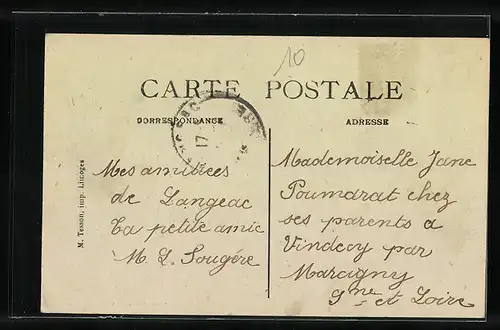 10
CARTE POSTALE
CORRESPONDANCE
ADRESSE
17
M. Tesson, imp. Limoges
Mes amitiées
de Langeac
La petite amie
M. L. Sougére
Mademoiselle Jane
Poumarat chez
ses parents a
Vindecy par
Marcigny
Sne et Loire